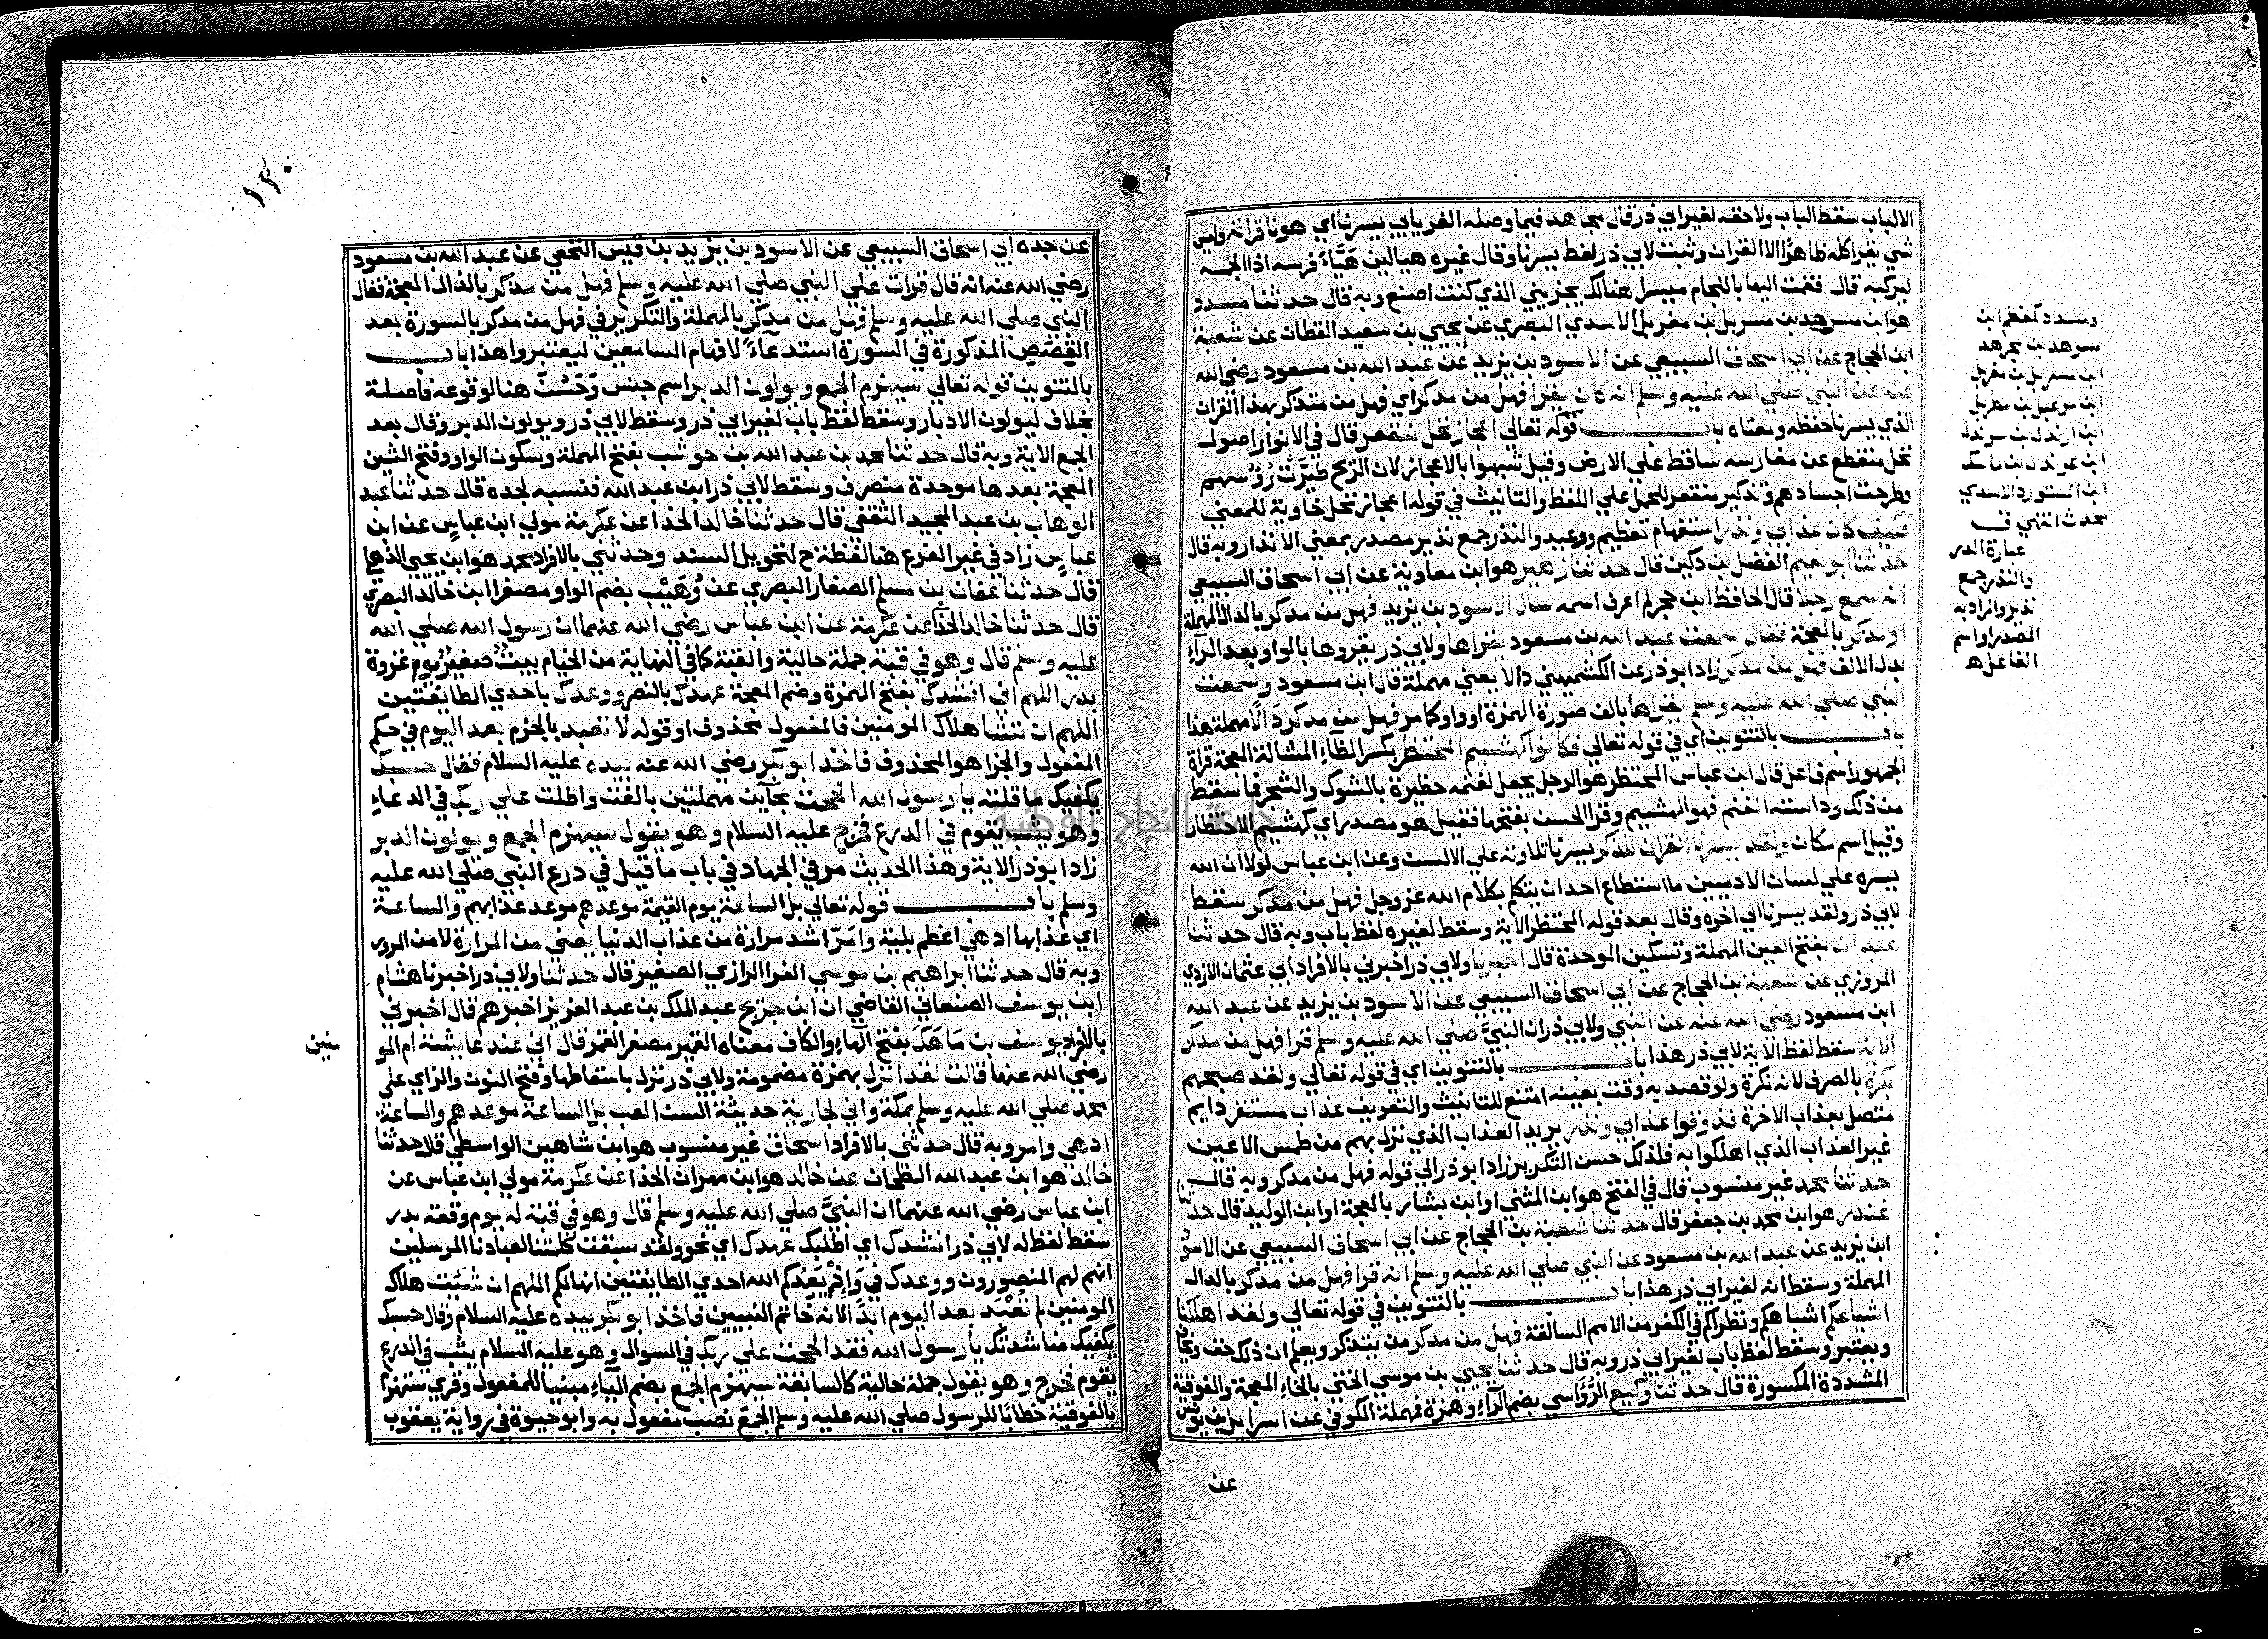 الالباب سقط الباب ولاحقه لغير ابي ذر قال مجاهد فيما وصله الفريابي يسرنا اي هونا قراته وليس
شي يقرا كله ظاهرًا الا القران وثبت لابي ذر لفظ يسرنا وقال غيره هيا لين هَيَّاءَ فرسه اذا الجمه
ليركبه قال فقمت اليها باللجام ميسرا هنالك يجزيني الذي كنت اصنع وبه قال حدثنا مسدد
هو ابن مسرهد بن مسربل بن مغربل الاسدي البصري عن يحيي بن سعيد القطان عن شعبة
ابن الحجاج عن ابي اسحاق السبيعي عن الاسود بن يزيد عن عبد الله بن مسعود رضي الله
عنه عن النبي صلي الله عليه وسلم انه كان يقرا فهل من مدكر اي فهل من متذكر بهذا القران
الذي يسرنا حفظه ومعناه باب قوله تعالي اعجاز نخل منقعر قال في الانوار اصول
نخل منقطع عن مغارسه ساقط علي الارض وقيل شبهوا بالاعجاز لان الريح طيَّرَتْ رُؤُسهم
وطرحت اجسادهم وتذكير منقعر للحمل علي اللفظ والتانيث في قوله اعجاز نخل خاوية للمعني
فكيف كان عذابي ونذر استفهام تعظيم ووعيد والنذر جمع نذير مصدر بمعني الانذار وبه قال
حدثنا ابو نعيم الفضل بن دكين قال حدثنا زهير هو ابن معاوية عن ابي اسحاق السبيعي
انه سمع رجلا قال الحافظ ابن حجر لم اعرف اسمه سال الاسود بن يزيد فهل من مدكر بالدال المهملة
او مذكر بالمعجمة فقال سمعت عبد الله بن مسعود يقراها ولابي ذر يقروها بالواو بعد الرآءِ
بدل الالف فهل من مدكر زاد ابو ذر عن الكشميهني دالا يعني مهملة قال ابن مسعود وسمعت
النبي صلي الله عليه وسلم يقراها بالف صورة الهمزة او واو كما مر فهل من مدكر دَالًا مهملة هذا
باب بالتنوين اي في قوله تعالي فكانوا كهشيم المحتظر بكسر الظآءِ المشالة المعجمة قراة
الجمهور اسم فاعل قال ابن عباس المحتظر هو الرجل يجعل لغنمه حظيرة بالشوك والشجر فما سقط
من ذلك وداسته الغنم فهو الهشيم وقرا الحسن بفتحها فقيل هو مصدر اي كهشيم الاحتظار
وقيل اسم مكان ولقد يسرنا القران للذكر يسرنا تلاوته علي الالسنت وعن ابن عباس لولا ان الله
يسره علي لسان الادميين ما استطاع احد ان يتكلم بكلام الله عز وجل فهل من مدكر سقط
لابي ذر ولقد يسرنا الي اخره وقال بعد قوله المحتظر الاية وسقط لغيره لفظ باب وبه قال حدثنا
عبدان بفتح العين المهملة وتسكين الموحدة قال اخبرنا ولابي ذر اخبرني بالافراد ابي عثمان الازدي
المروزي عن شعبة بن الحجاج عن ابي اسحاق السبيعي عن الاسود بن يزيد عن عبد الله
ابن مسعود رضي الله عنه عن النبي ولابي ذر ان النبيَّ صلي الله عليه وسلم قرا فهل من مدكر
الاية سقط لفظ الاية لابي ذر هذا باب بالتنوين اي في قوله تعالي ولقد صبحهم
بكرة بالصرف لانه نكرة ولو قصد به وقت بعينه امتنع للتانيث والتعريف عذاب مستقر دايم
متصل بعذاب الاخرة فذوقوا عذابي ونذر يريد العذاب الذي نزل بهم من طمس الاعين
غير العذاب الذي اهلكوا به فلذلك حسن التكرير زاد ابو ذر الي قوله فهل من مدكر وبه قال
حدثنا محمد غير منسوب قال في الفتح هو ابن المثني او ابن بشار بالمعجمة او ابن الوليد قال حدثنا
غندر هو ابن محمد بن جعفر قال حدثنا شعبة بن الحجاج عن ابي اسحاق السبيعي عن الاسود
ابن يزيد عن عبد الله بن مسعود عن النبي صلي الله عليه وسلم انه قرا فهل من مدكر بالدال
المهملة وسقط انه لغير ابي ذر هذا باب بالتنوين في قوله تعالي ولقد اهلكنا
اشياعكم اشباهكم ونظراكم في الكفر من الامم السالفة فهل من مدكر من يتذكر ويعلم ان ذلك حق ويخاف
ويعتبر وسقط لفظ باب لغير ابي ذر وبه قال حدثنا يحيي بن موسي الختي بالخاءِ المعجمة والفوقية
المشددة المكسورة قال حدثنا وكيع الرُّؤَاسي بضم الرآءِ وهمزة فمهملة الكوفي عن اسرايل بن يونس
عن
ومسدد كمعظم ابن
مسرهد بن مجرهد
ابن مسربل بن مغربل
ابن مرعبل بن مطربل
ابن ارندل بن سرندل
ابن عرندل بن ماسك
ابن المستورد الاسدي
محدث انتهي ق
عبارة الدر
والنذر جمع
نذير والمراد به
المصدر او اسم
الفاعل اهـ
١٣٠
عن جده ابي اسحاق السبيعي عن الاسود بن يزيد بن قيس النخعي عن عبد الله بن مسعود
رضي الله عنه انه قال قرات علي النبي صلي الله عليه وسلم فهل من مذكر بالذال المعجمة فقال
النبي صلي الله عليه وسلم فهل من مدكر بالمهملة والتكرير في فهل من مدكر بالسورة بعد
القصص المذكورة في السورة استدعاءً لافهام السامعين ليعتبروا هذا باب
بالتنوين قوله تعالي سيهزم الجمع ويولون الدبر اسم جنس وَحَسُنَ هنا لوقوعه فاصلة
بخلاف ليولون الادبار وسقط لفظ باب لغير ابي ذر وسقط لابي ذر ويولون الدبر وقال بعد
الجمع الاية وبه قال حدثنا محمد بن عبد الله بن حوشب بفتح المهملة وسكون الواو وفتح الشين
المعجمة بعدها موحدة منصرف وسقط لابي ذر ابن عبد الله فنسبه لجده قال حدثنا عبد
الوهاب بن عبد المجيد الثقفي قال حدثنا خالد الحذا عن عكرمة مولي ابن عباسٍ عن ابن
عباسٍ زاد في غير الفرع هنا لفظة ح لتحويل السند وحدثني بالافراد محمد هو ابن يحيي الذهلي
قال حدثنا عفان بن مسلم الصفار البصري عن وُهَيْب بضم الواو مصغرا ابن خالد البصري
قال حدثنا خالد الحذآ عن عكرمة عن ابن عباس رضي الله عنهما ان رسول الله صلي الله
عليه وسلم قال وهو في قبة جملة حالية والقبة كما في النهاية من الخيام بيت صغير يوم غزوة
بدر اللهم اني انشدك بفتح الهمزة وضم المعجمة عهدك بالنصر ووعدك باحدي الطايفتين
اللهم ان تشا هلاك المومنين فالمفعول محذوف او قوله لا تعبد بالجزم بعد اليوم في حكم
المفعول والجزا هو المحذوف فاخذ ابو بكر رضي الله عنه بيده عليه السلام فقال حسبك
يكفيك ما قلته يا رسول الله الححت بحآين مهملتين بالغت واطلت علي ربك في الدعاءِ
وهو يثب يقوم في الدرع فخرج عليه السلام وهو يقول سيهزم الجمع ويولون الدبر
زاد ابو ذر الاية وهذا الحديث مر في الجهاد في باب ما قيل في درع النبي صلي الله عليه
وسلم باب قوله تعالي بل الساعة يوم القيمة موعدهم موعد عذابهم والساعة
اي عذابها ادهي اعظم بلية وامَرّ اشد مرارة من عذاب الدنيا يعني من المرارة لا من المرور
وبه قال حدثنا ابراهيم بن موسي الفرا الرازي الصغير قال حدثنا ولابي ذر اخبرنا هشام
ابن يوسف الصنعاني القاضي ان ابن جريج عبد الملك بن عبد العزيز اخبرهم قال اخبرني
بالافراد يوسف بن مَاهَكَ بفتح الهآءِ والكاف معناه القمير مصغر القمر قال اني عند عايشة ام المو
منين
رضي الله عنها قالت لقد انزل بهمزة مضمومة ولابي ذر نزل باسقاطها وفتح النون والزاي علي
محمد صلي الله عليه وسلم بمكة واني لجارية حديثة السن العب بل الساعة موعدهم والساعة
ادهي وامر وبه قال حدثني بالافراد اسحاق غير منسوب هو ابن شاهين الواسطي قال حدثنا
خالد هو ابن عبد الله الطحان عن خالد هو ابن مهران الحذا عن عكرمة مولي ابن عباس عن
ابن عباس رضي الله عنهما ان النبيَّ صلي الله عليه وسلم قال وهو في قبة له يوم وقعة بدر
سقط لفظ له لابي ذر انشدك اي اطلبك عهدك اي نحو ولقد سبقت كلمتنا لعبادنا المرسلين
انهم لهم المنصورون ووعدك في وَاِذْ يَعِدُكم الله احدي الطايفتين انها لكم اللهم ان شئت هلاك
المومنين لم تُعْبَد بعد اليوم ابدًا لانه خاتم النبيين فاخذ ابو بكر بيده عليه السلام وقال حسبك
يكفيك مناشدتك يا رسول الله فقد الححت علي ربك في السوال وهو عليه السلام يثب في الدرع
يقوم فخرج وهو يقول جملة حالية كالسابقة سيهزم الجمع بضم اليآءِ مبنيا للمفعول وقري ستهزم
بالفوقية خطابًا للرسول صلي الله عليه وسلم الجمعَ نصب مفعول به وابو حيوة في رواية يعقوب